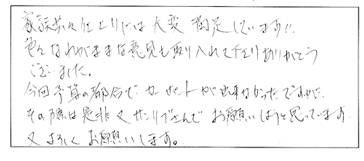 家族共々仕上りには大変満足しています!!
色んなわがままな意見も取り入れて下さりありがとう
ございました。
今回予算の都合でカーポートが出来なかったですが、
その際は是非又サンリブさんでお願いしようと思っています。
又よろしくお願いします。